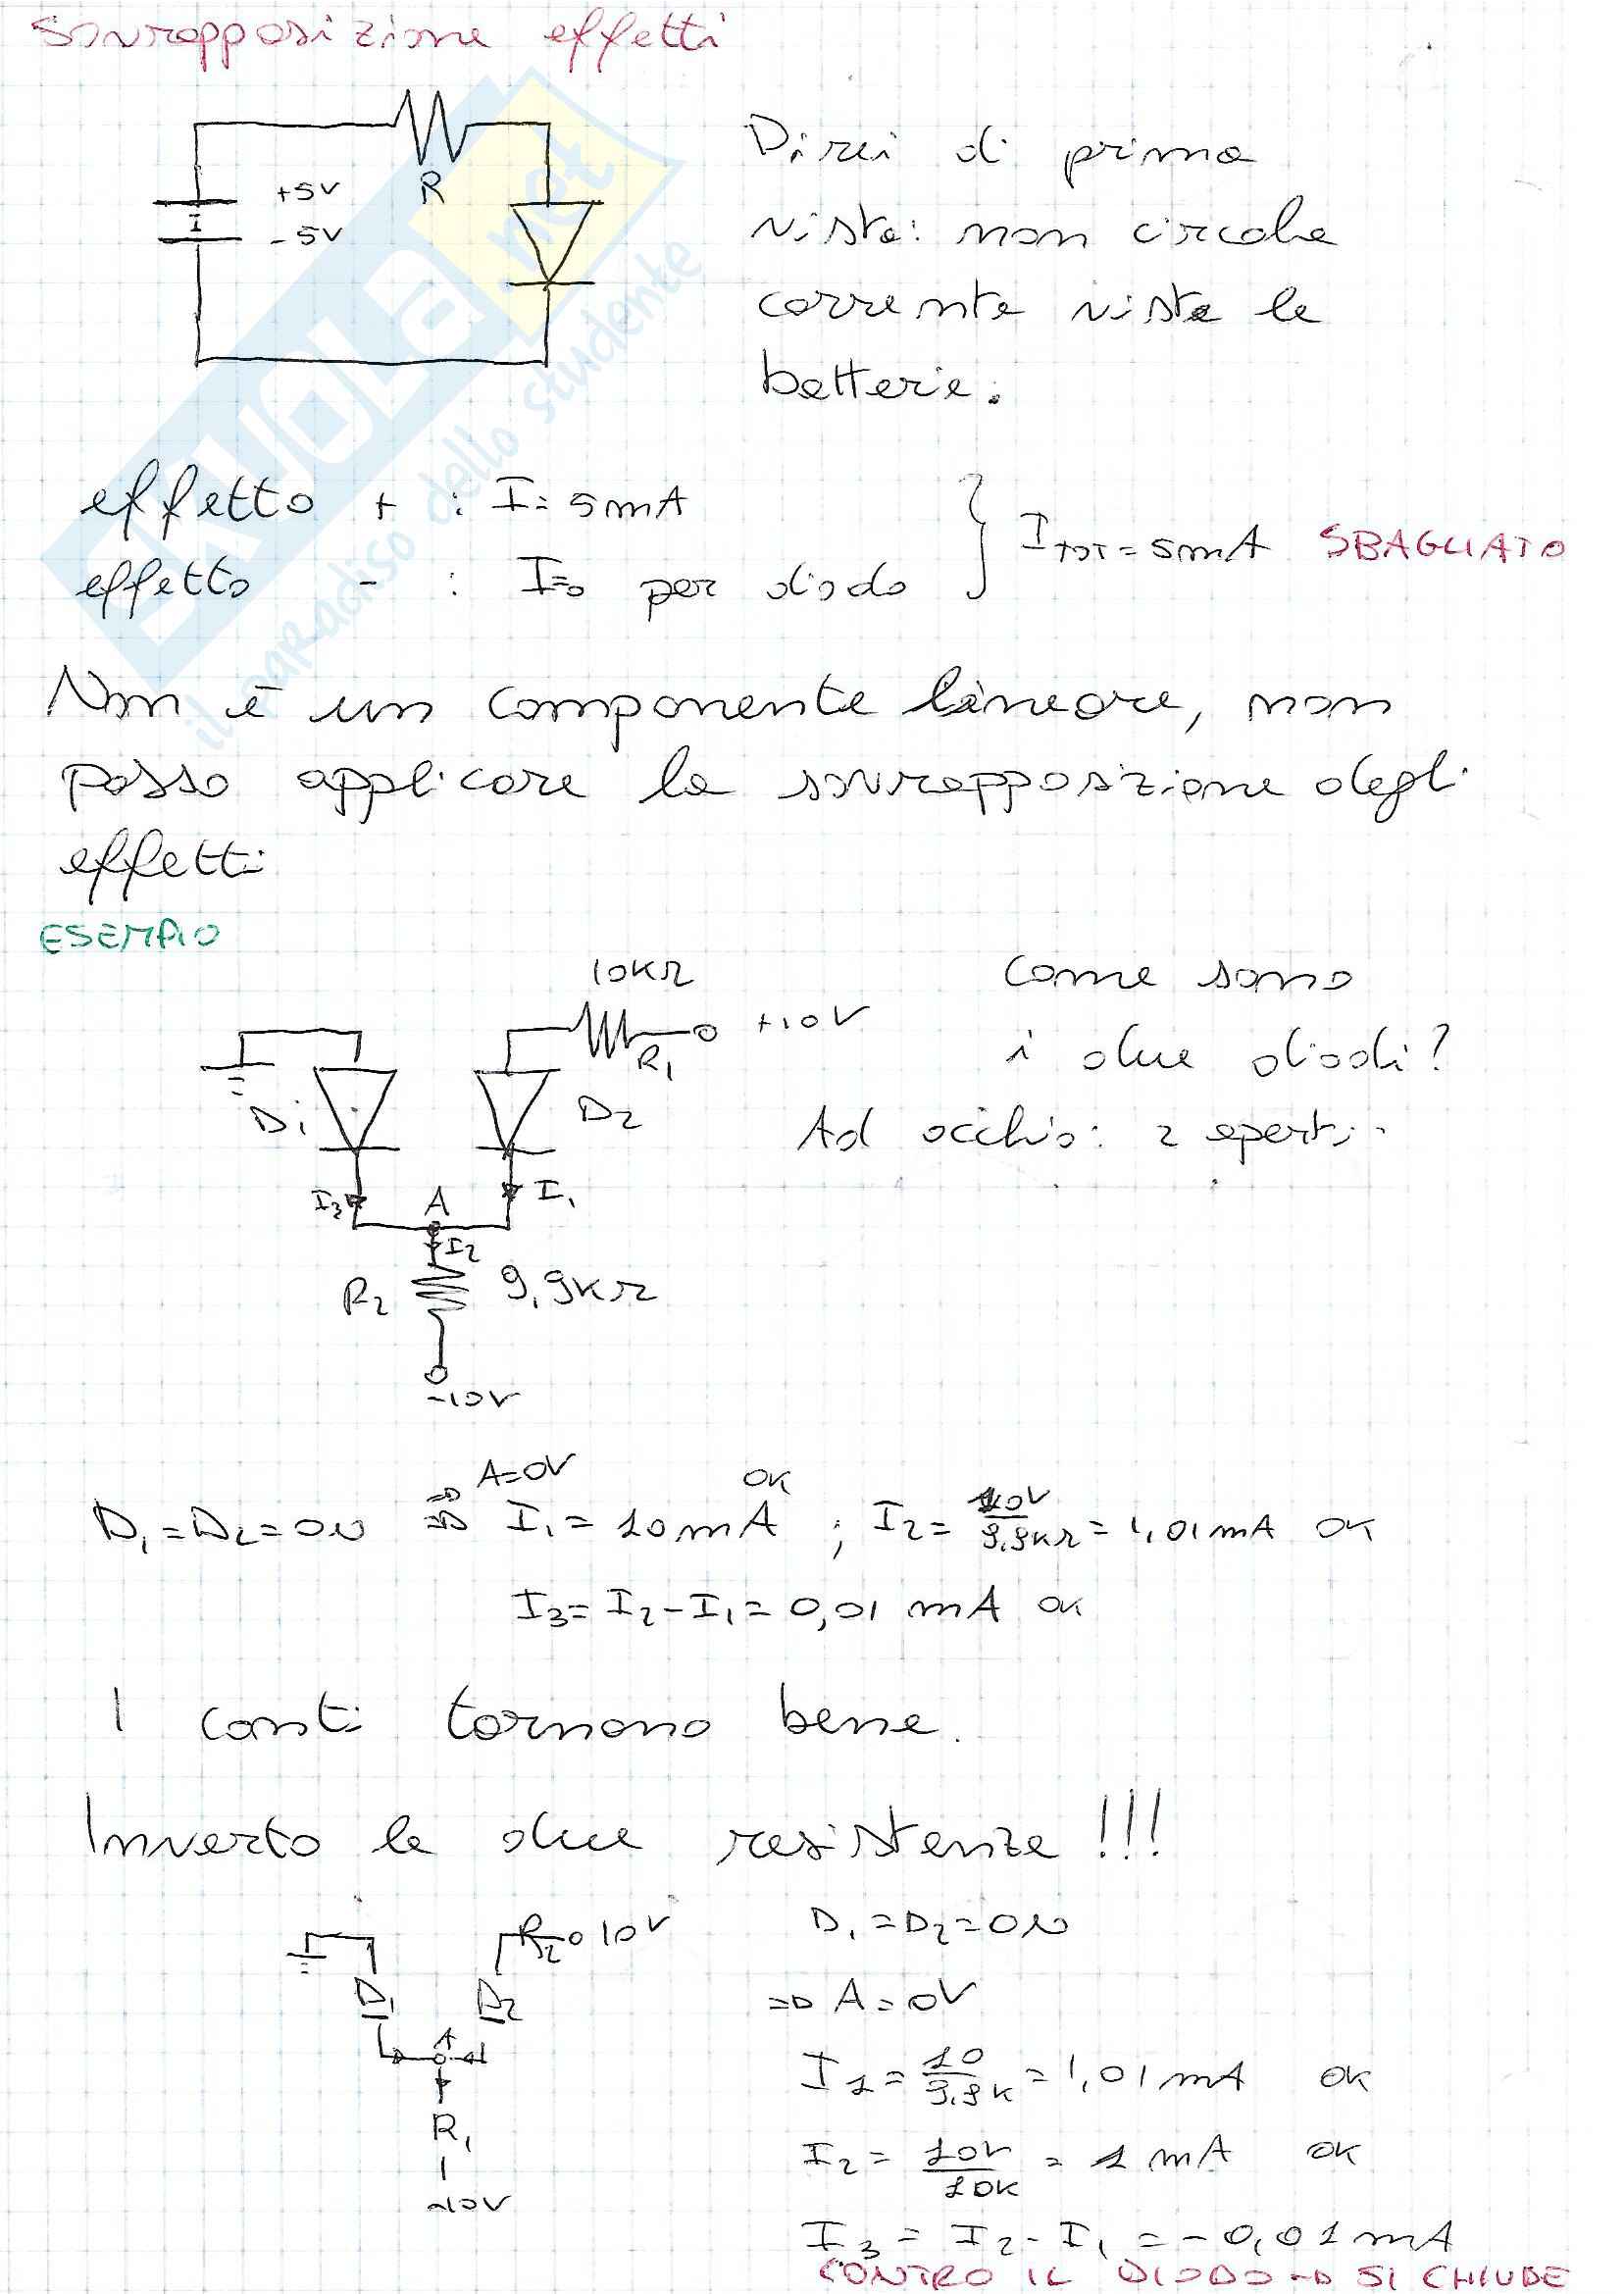 Sovrapposizione effetti
R
+5V
I
-5V
Direi di prima
vista: non circola
corrente viste le
batterie.
effetto + : I = 5mA
effetto - : I=0 per diodo
} ITOT = 5mA SBAGLIATO
Non è un componente lineare, non
posso applicare la sovrapposizione degli
effetti
ESEMPIO
10KΩ
+10V
R1
D1
D2
Come sono
i due diodi?
Ad occhio: 2 aperti.
I3
A
I1
I2
R2 9,9KΩ
-10V
D1 = D2 = ON ⇒ A=0V
⇒ I1 = 10mA OK ; I2 = 10V/9,9KΩ = 1,01mA OK
I3 = I2 - I1 = 0,01 mA OK
I conti tornano bene.
Inverto le due resistenze!!!
R2 10V
D1
D2
A
R1
-10V
D1 = D2 = ON
⇒ A = 0V
I1 = 10/9,9K = 1,01mA OK
I2 = 10V/10K = 1 mA OK
I3 = I2 - I1 = -0,01mA
CONTRO IL DIODO → SI CHIUDE
SKUOLA.net
il paradiso dello studente